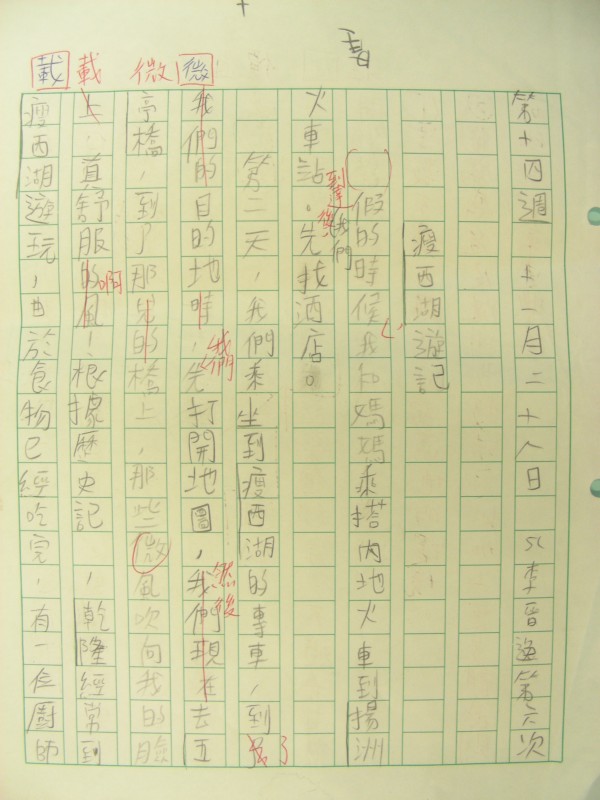 第十四週 十一月二十八日 李晉 第六次
瘦西湖遊記
假的時候,我和媽媽乘搭內地火車到揚洲
火車站。到達後我們先找酒店。
第二天,我們乘坐到瘦西湖的專車,到了
我們的目的地時,我們先打開地圖,然後我們現在去五
亭橋,到了那兒的橋上,那些微風吹向我的臉
上,真舒服的啊風!根據歷史記,乾隆經常到
瘦西湖遊玩,由於食物已經吃完,有一位廚師
微微
載載